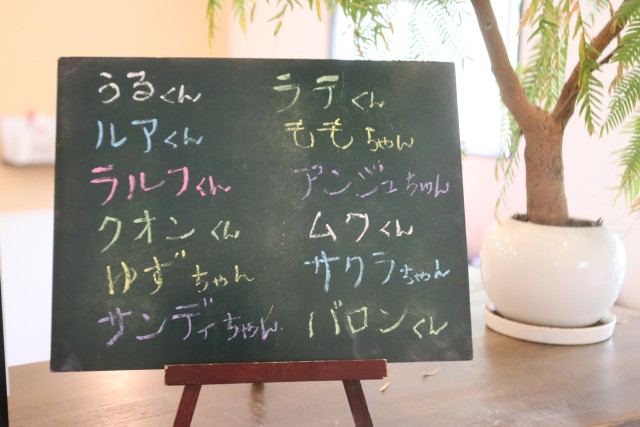 うるくん
ルアくん
ラルフくん
クオンくん
ゆずちゃん
サンディちゃん
ラテくん
ももちゃん
アンジュちゃん
ムワくん
サクラちゃん
バロンくん